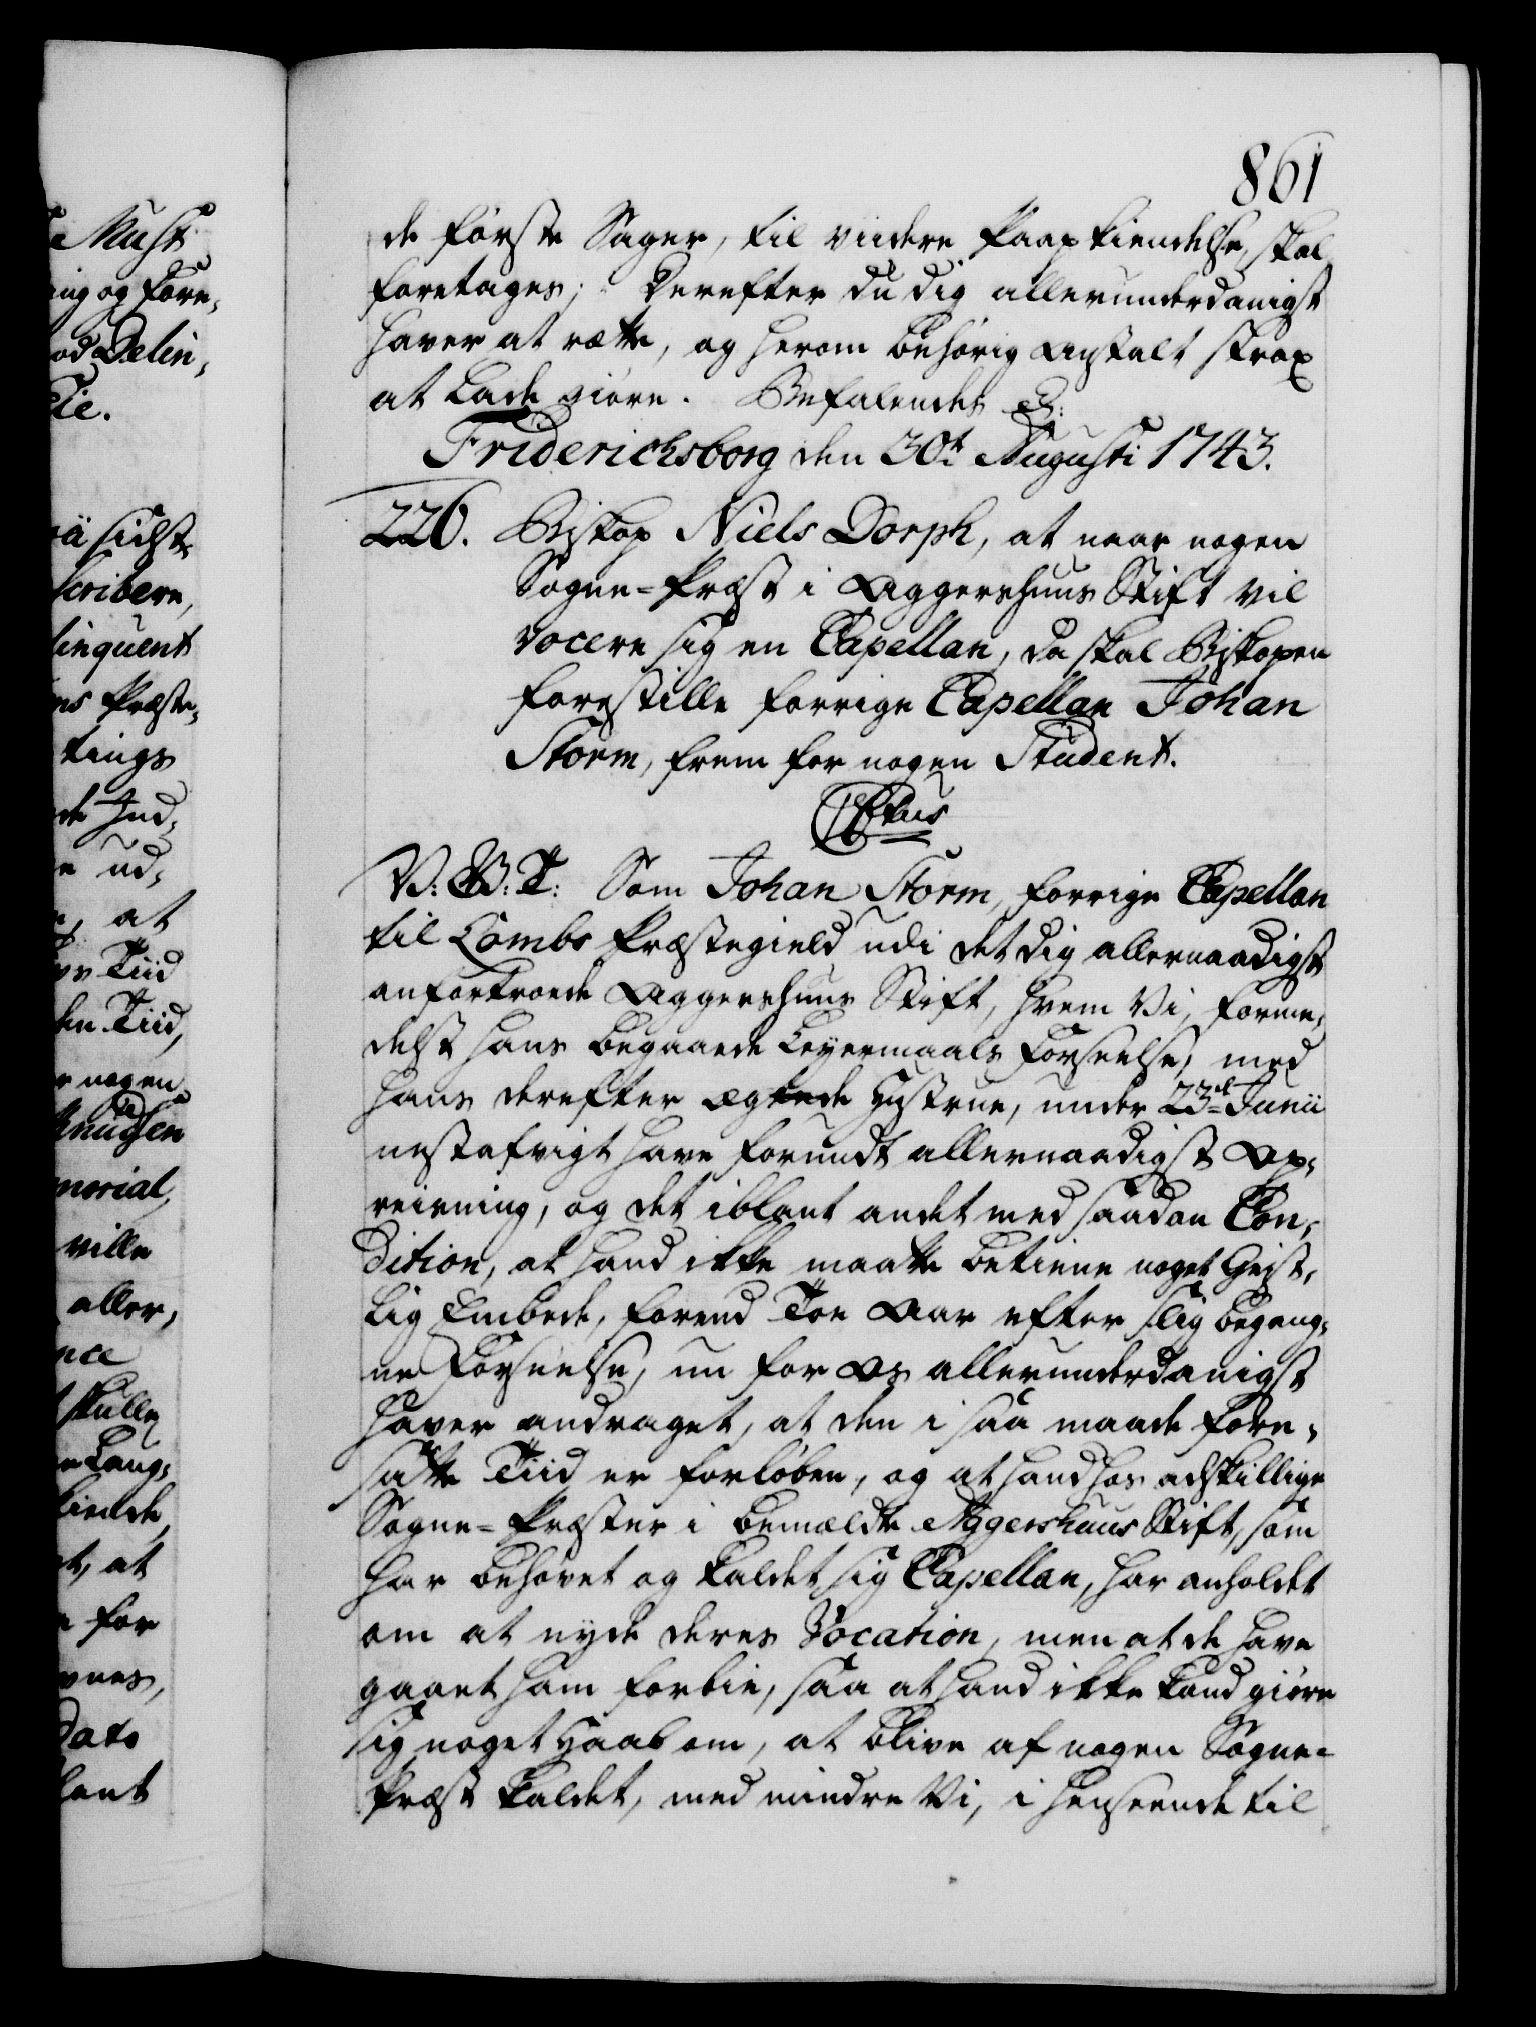 Must
ing og fore,
od Delin,
cie.
på sidst
scribere,
linquent
ns Præste,
tings
de Ind,
e ud,
, at
Tiid
den Tiid,
r nogen
Knudsen
morial,
ville
aller,
nce
skulle
Lang,
kiende,
t, at
for
vnes,
Dato
lant
861
de første Sager, til viidere Paakiendelse, skal
foretages; Derefter du dig allerunderdanigst
haver at rætte, og herom behørig Anstalt strax
at lade giøre. Befalendes &:
Friderichsborg den 30t Augusti 1743.
226. Biskop Niels Dorph, at naar nogen
Sogne-Præst i Aggershuus Stift vil
vocere sig en Capellan, da skal Biskopen
forestille forrige Capellan Johan
Storm, frem for nogen Student.
C6tus
V: G: T: Som Johan Storm, forrige Capellan
til Lombs Præstegield udi det dig allernaadigst
anfortroede Aggershuus Stift, hvem Vi, forme,
delst hans begaaede Leyermaals Forseelse, med
hans derefter ægtede Hustrue, under 23de Junii
nestafvigt have forundt allernaadigst Op,
reisning, og det iblant andet med saadan Con,
dition, at hand ikke maatte betiene noget Geist,
lig Embede, førend Toe Aar efter slig begang,
ne Forseelse, nu for Os allerunderdanigst
haver andraget, at den i saa maade fore,
satte Tiid er forløben, og at hand hos adskillige
Sogne-Præster i bemældte Aggershuus Stift, som
har behøvet og kaldet sig Capellan, har anholdet
om at nyde deres Vocation, men at de have
gaaet ham forbie, saa at hand ikke kand giøre
sig noget Haab om, at blive af nogen Sogne-
Præst kaldet, med mindre Vi, i henseende til